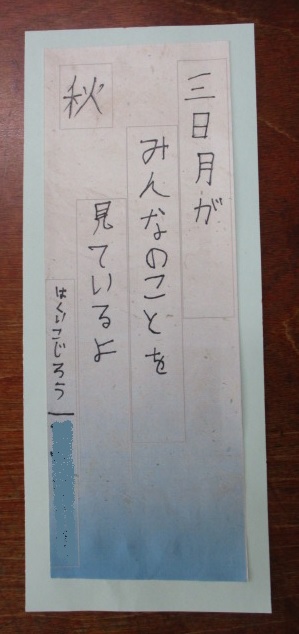 三日月が
みんなのことを
見ているよ
秋
はくいこじろう